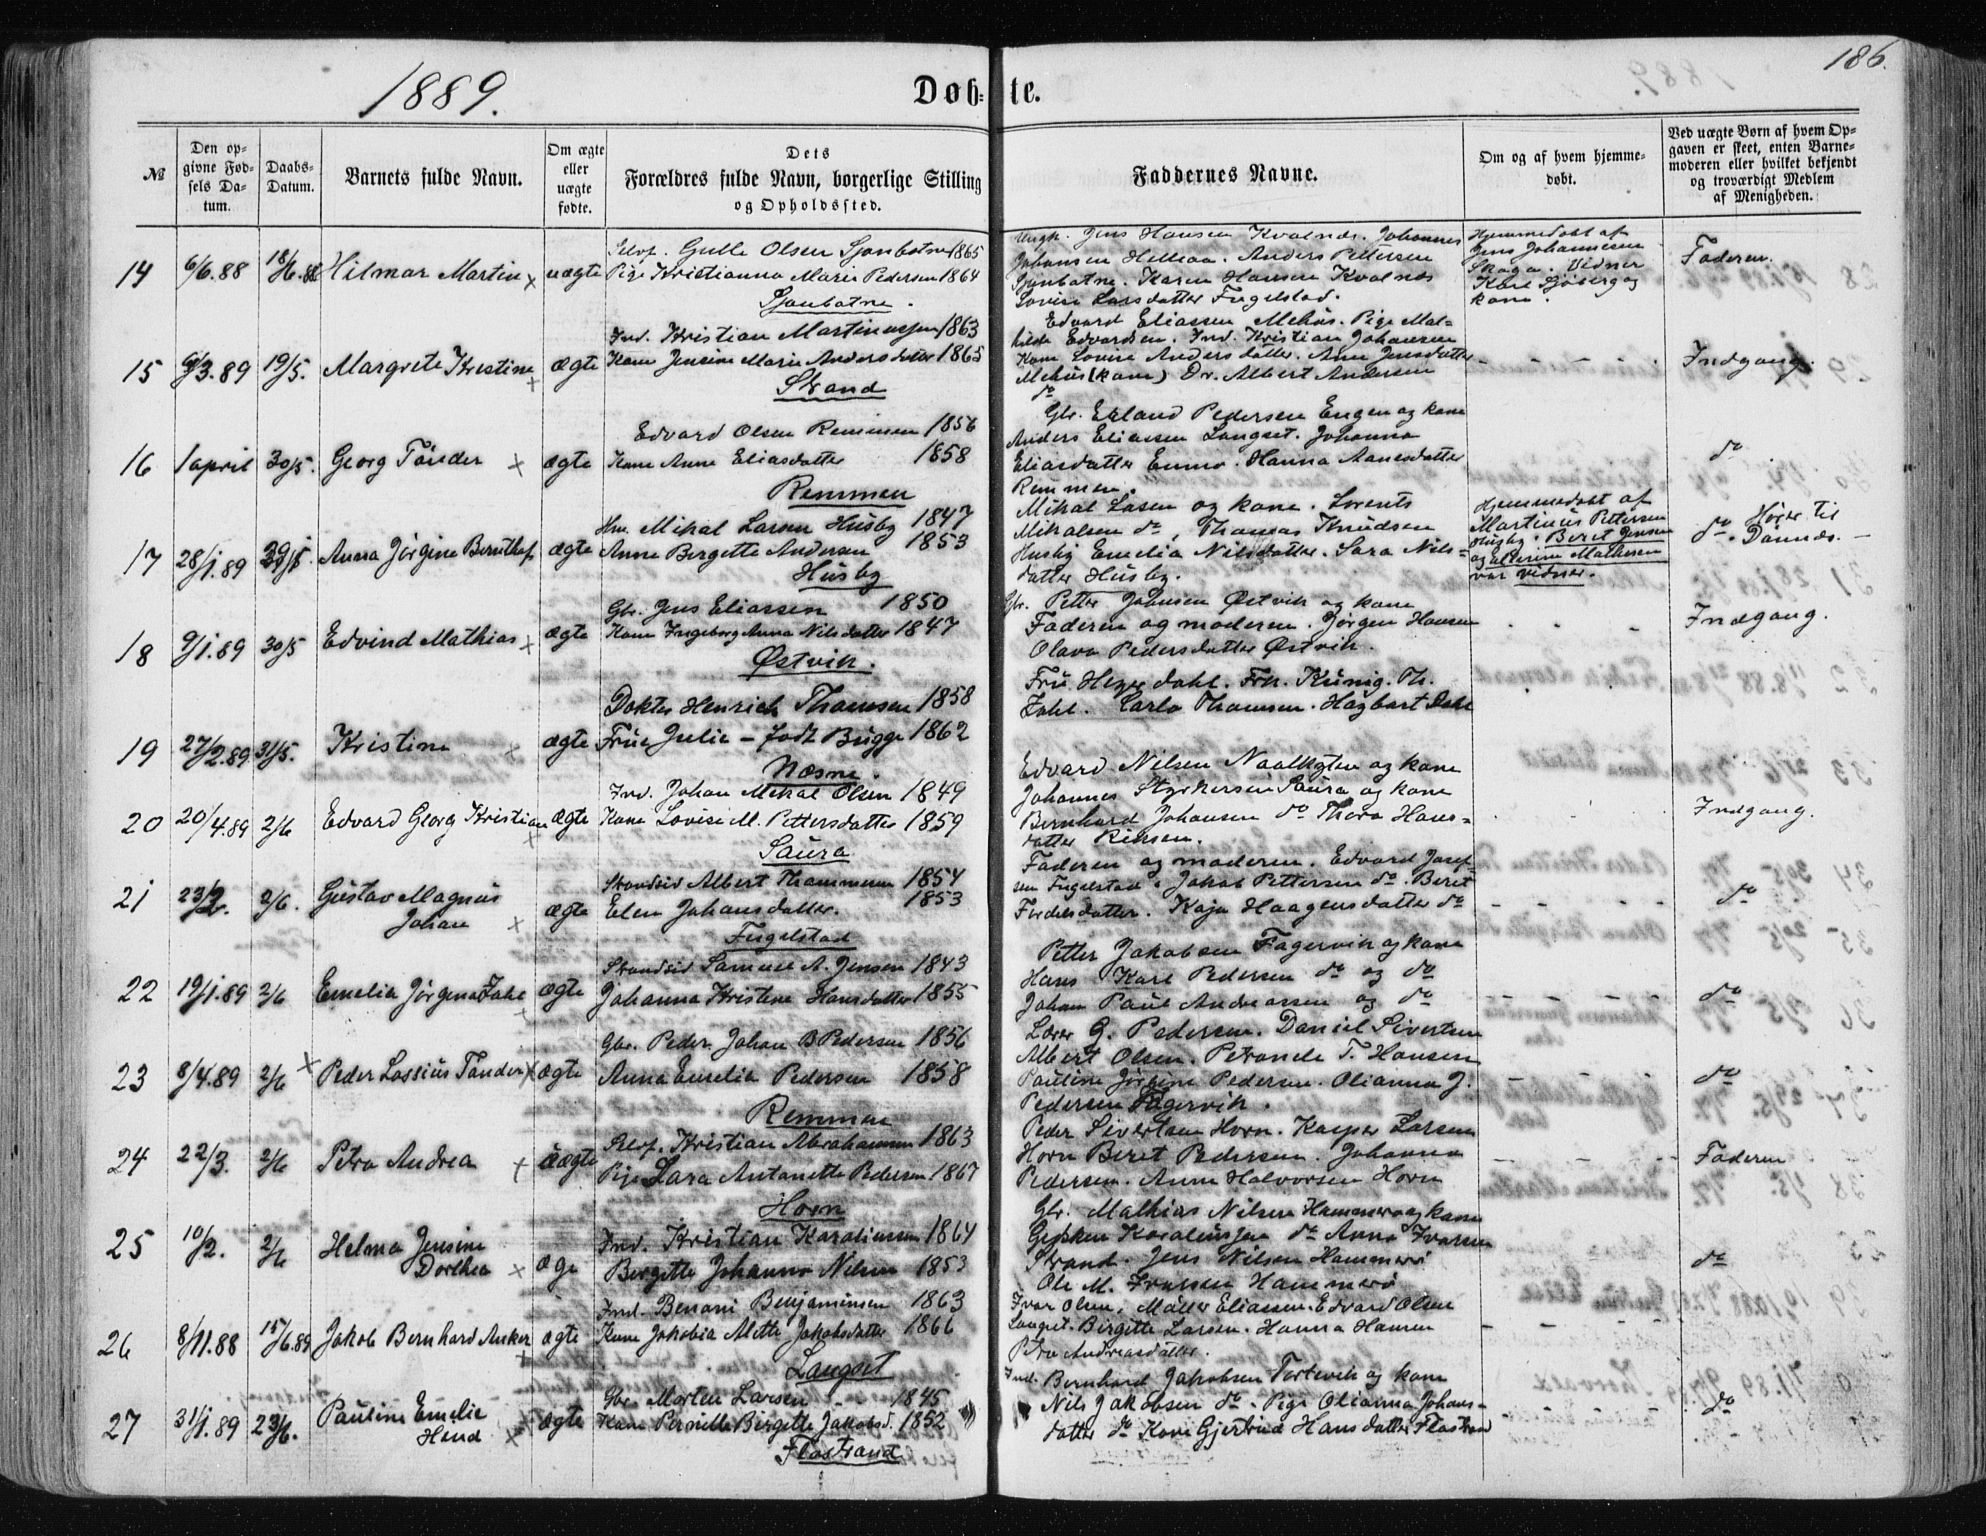 1889.
Døb= te.
186.
№
Den op=
givne Fød=
sels Da=
tum.
Daabs=
Datum.
Barnets fulde Navn.
Om ægte
eller
uægte
fødte.
Dets
Forældres fulde Navn, borgerlige Stilling
og Opholdssted.
Faddernes Navne.
Om og af hvem hjemme=
døbt.
Ved uægte Børn af hvem Op=
gaven er skeet, enten Barne=
moderen eller hvilket bekjendt
og troværdigt Medlem
af Menigheden.
14 6/6.88 18/6.88 Hilmar Martin x uægte
Selvf. Gulle Olsen Sjonbotne 1865
Pige Kristianna Marie Pedersen 1864
Sjonbotne.
Ungk. Jens Hansen Kvalnæs. Johannes
Johansen Hemaa. Anders Pettersen
Sjonbotne. Karen Hansen Kvalnæs
Lovise Larsdatter Fugelstad.
Hjemmedøbt af
Jens Johannesen
Skaga. Vidner
Karl Sjøberg og
kone.
Faderen.
15 9/3.89 19/5. Margrete Kristine x ægte
Ind. Kristian Martinussen 1863
Kone Jensine Marie Andersdatter 1865
Strand
Edvard Eliassen Mehus. Pige Mat=
hilde Edvardsen. Ind. Kristian Johansen
Kone Lovise Andersdatter. Ane Jensdatter
Mehus (kone) Dr. Albert Andersen
do
Indgang.
16 1 april 30/5. Georg Tønder x ægte
Edvard Olsen Remmen 1856
Kone Anne Eliasdatter 1858
Remmen
Gbr. Erland Pedersen Engen og kone
Anders Eliassen Langset. Johanna
Eliasdatter Enmo. Hanna Aanesdatter
Remmen.
do.
17 28/1.89 Anna Jørgine Bernthof. ægte
Hm. Mikal Larsen Husby 1847
Anne Bergitte Andersen 1853
Husby
Mikal Lasen og kone. Lorents
Mikalsen do, Thomas Knudsen
Husby Emelia Nilsdatter. Sara Nils=
datter Husby.
Hjemmedøbt af
Martinus Pettersen
Husby. Beret Jensen
og Elerine Mathesen
var vidner.
do. Hører til
Dønnes. —
18 9/1.89 30/5 Edvind Mathias x ægte
Gbr. Jens Eliassen 1850
Kone Ingeborg Anna Nilsdatter 1847
Østvik.
Gbr. Petter Johnsen Østvik og kone
Faderen og moderen. Jørgen Hansen
Olava Pedersdatter Østvik.
Indgang.
19 27/2.89 31/5. Kristine x ægte
Dokter Henrich Thomsen 1858
Frue Julie – født Bugge 1862
Næsne.
Fru Heyerdahl. Frk. Kunig. Th.
Dahl. Carlo Thomsen. Hagbart Dahl
20 20/4.89 2/6 Edvard Georg Kristian x ægte
Ind. Johan Mikal Olsen 1849
Kone Lovise M. Pettersdatter 1859
Saura
Edvard Nilsen Naalkgten og kone
Johannes Styrkersen Saura og kone
Bernhard Johansen do Thora Hans=
datter Rinsen.
Indgang.
21 23/2. 2/6. Gustav Magnus
Johan x ægte
Strandsid Albert Thommesen 1854
Elen Johansdatter. 1853
Fugelstad
Faderen og moderen. Edvard Josef=
sen Fugelstad. Jakob Pettersen do. Beret
Fredeksdatter. Kaja Haagensdatter do
do
22 19/1.89 2/6 Emelia Jørgina Zahl ægte
Strandsid Samuel A. Jensen 1843
Johanna Kristine Hansdatter 1855
Petter Jakobsen Fagervik og kone
Hans Karl Pedersen do og do
Johan Paul Andreassen og do
do
23 8/4.89 2/6 x Peder Lossius Tønder x ægte
Gbr. Peder Johan B Pedersen 1856
Anna Emelia Pedersen 1858
Remmen
Lærer G. Pedersen. Daniel Sivertsen
Albert Olsen. Petronele T. Hansen
Pauline Jørgine Pedersen. Olianna J.
Pedersen Fagervik.
do
24 22/3. 2/6 Petra Andrea x uægte
Selvf. Kristian Abrahamsen 1863
Pige Lara Antonette Pedersen 1867
Horn
Peder Sivertsen Horn. Kasper Larsen
Horn Beret Pedersen. Johanna
Pedersen. Anne Halvorsen Horn
Faderen
25 10/2. 2/6 Helma Jensine
Dorthea x ægte
Ind. Kristian Karoliussen 1864
Birgitte Johanna Nilsen 1853
Gbr. Mathias Nilsen Hammerø og kone
Gedsken Karoliussen do Anna Ivarsen
Strand. Jens Nilsen Hammerø
Ole M. Ivarsen Hammerø
do
26 8/11.88 15/6.89 Jakob Bernhard Anker x ægte
Ind. Benoni Benjaminsen 1863
Kone Jakobia Alette Jakobsdatter 1866
Langset
Ivar Olsen, Møller Eliassen. Edvard Olsen
Langset. Birgitte Larsen. Hanna Hansen
Petra Andreasdatter.
27 31/1.89 23/6. Pauline Emelie
Hend x ægte
Gbr. Morten Larsen 1845
Kone Pernille Birgitte Jakobsd. 1852
Flostrand
Ind. Bernhard Jakobsen Fortevik og kone
Nils Jakobsen do. Pige Olianna Johans=
datter do Kone Gjertrud Hansdatter Flostrand
do